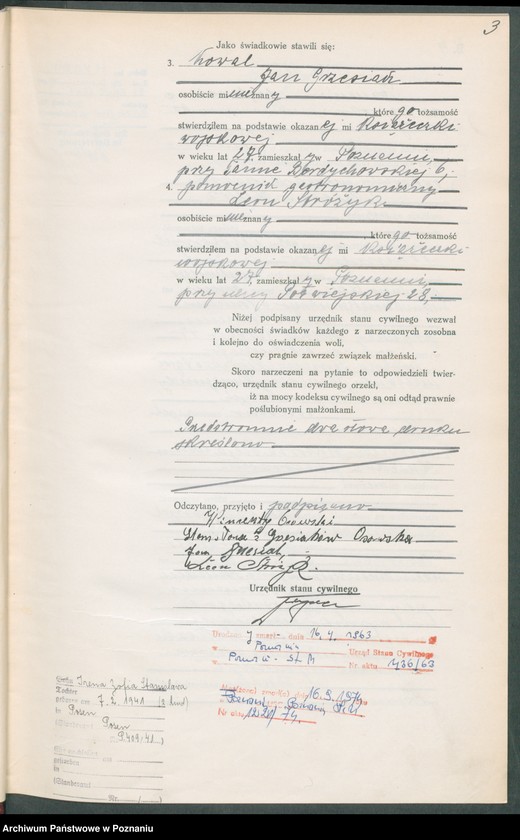 3
Jako świadkowie stawili się:
3. kowal
Jan Grzesiak
osobiście mi nieznany
którego tożsamość
stwierdziłem na podstawie okazanej mi książeczki
wojskowej
w wieku lat 27, zamieszkały w Poznaniu,
przy
4. pomocnik gastronomiczny
Leon Stróżyk
osobiście mi nieznany
którego tożsamość
stwierdziłem na podstawie okazanej mi książeczki
wojskowej
w wieku lat 27, zamieszkały w Poznaniu,
przy ulicy Półwiejskiej 28,-
Niżej podpisany urzędnik stanu cywilnego wezwał
w obecności świadków każdego z narzeczonych zosobna
i kolejno do oświadczenia woli,
czy pragnie zawrzeć związek małżeński.
Skoro narzeczeni na pytanie to odpowiedzieli twier-
dząco, urzędnik stanu cywilnego orzekł,
iż na mocy kodeksu cywilnego są oni odtąd prawnie
poślubionymi małżonkami.
Przedstronnie dwa słowa druku
skreślono
Odczytano, przyjęto i podpisano
Wincenty Osowski
Osowska
Jan Grzesiak
Leon Stróżyk.
Urzędnik stanu cywilnego
zmarł dnia 16. 4. 1963
w Poznaniu Urząd Stanu Cywilnego
w Poznań - St. M Nr. aktu 436/63
16.9.1974
Poznań
Nr aktu 1221/74
Irena Zofia Stanisława
7.2.1941
in Posen
(Standesamt Posen
- 2409/41)
in
(Standesamt
Nr.
Archiwum Państwowe w Poznaniu